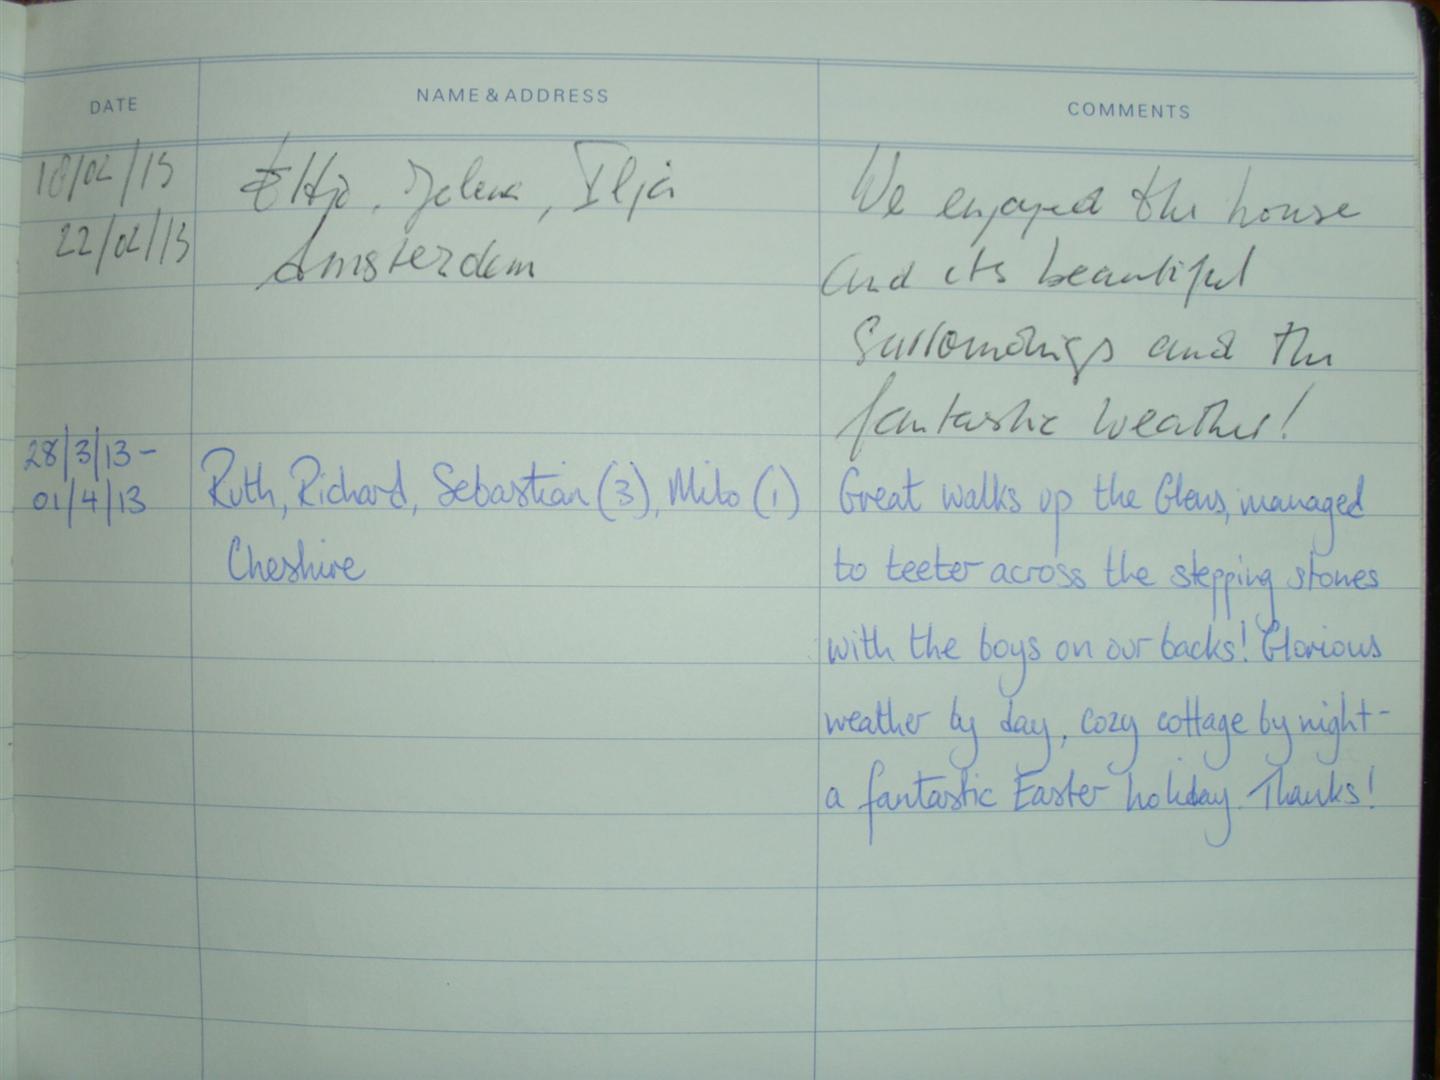 DATE NAME & ADDRESS COMMENTS
18/02/13 Jelena, Ilja We enjoyed the house
22/02/13 Amsterdam and its beautiful
surroundings and the
fantastic weather!
28/3/13 -
01/4/13 Ruth, Richard, Sebastian (3), Milo (1) Great walks up the Glens, managed
Cheshire to teeter across the stepping stones
with the boys on our backs! Glorious
weather by day, cozy cottage by night -
a fantastic Easter holiday. Thanks!